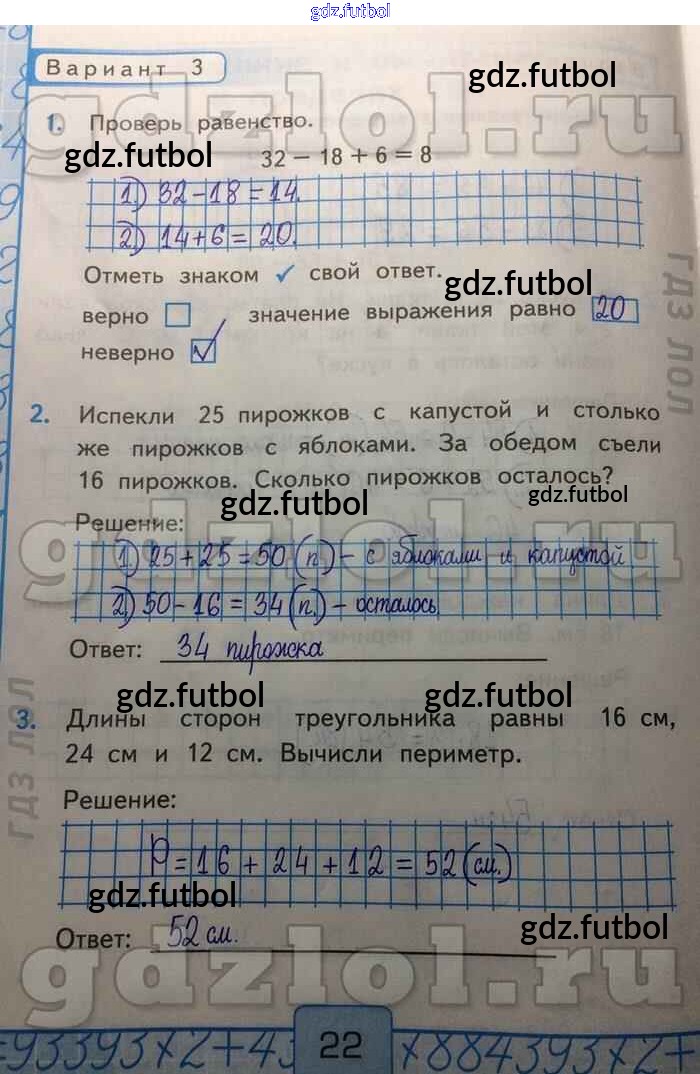 gdz.futbol
Вариант 3
gdz.futbol
1. Проверь равенство.
gdz.futbol
32 − 18 + 6 = 8
1) 32-18=14.
2) 14+6=20.
Отметь знаком ✓ свой ответ.
gdz.futbol
верно значение выражения равно 20
неверно ✓
гдз лол
2. Испекли 25 пирожков с капустой и столько
же пирожков с яблоками. За обедом съели
16 пирожков. Сколько пирожков осталось?
gdz.futbol gdz.futbol
gdzlol.ru
Решение:
1) 25+25=50 (п.) - с яблоками и капустой
2) 50-16=34 (п.) - осталось
Ответ: 34 пирожка
gdz.futbol gdz.futbol
гдз лол
3. Длины сторон треугольника равны 16 см,
24 см и 12 см. Вычисли периметр.
Решение:
P=16+24+12=52 (см.)
gdz.futbol
gdz.futbol
Ответ: 52 см.
gdzlol.ru
22